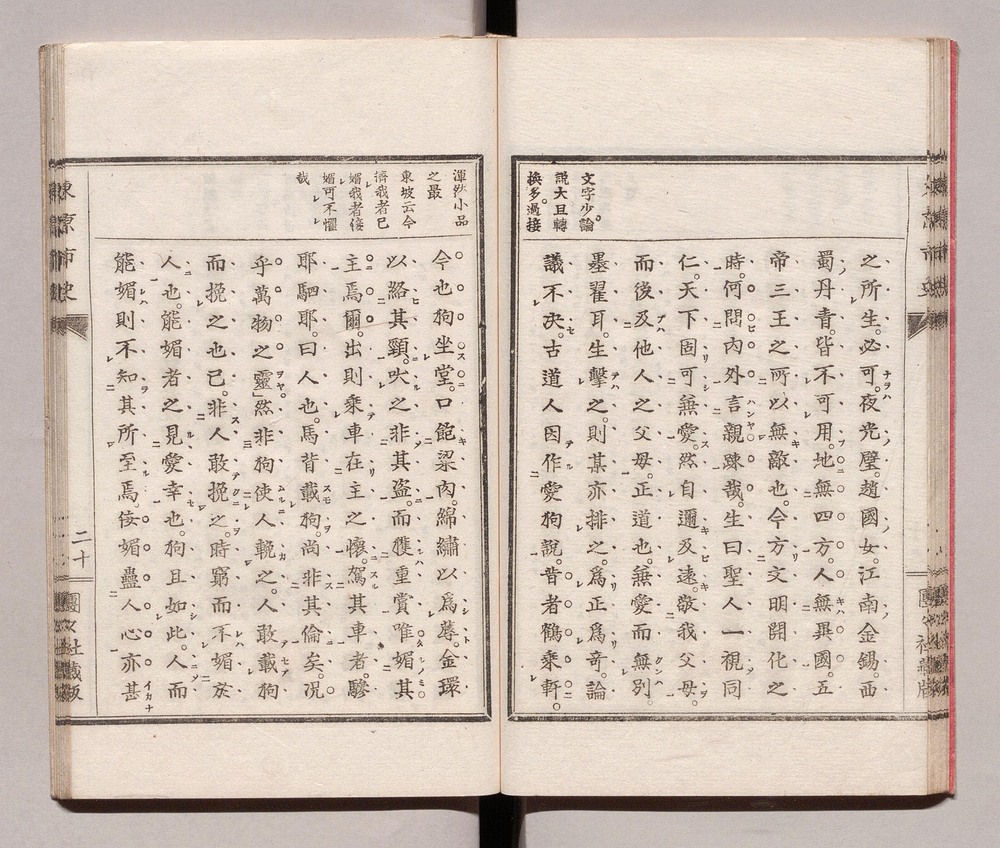 文字少。論
說大且轉
換多。過接
之所生。必可。夜光璧。趙國女。江南金錫。西
蜀丹青。皆不可用。地無四方。人無異國。五
帝三王之所以無敵也。今方文明開化之
時。何問內外言親踈哉。生曰聖人一視同
仁。天下固可兼愛。然自邇及遠。敬我父母。
而後及他人之父母。正道也。兼愛而無別。
墨翟耳。生擊之。則某亦排之。爲正爲奇。論
議不決。古道人因作愛狗說。昔者鶴乘軒。
渾然小品
之最
東坡云今
濟我者已
媚我者倰
媚可不懼
哉
今也狗坐堂。口飽粱肉。綿繡以爲蓐。金環
以絡其頸。吠之非其盜。而獲重賞。唯媚其
主焉爾。出則乘車在主之懷。駕其車者。驂
耶駟耶。曰人也。馬背載狗。尚非其倫矣。况
乎萬物之靈」然非狗使人輓之。人敢載狗
而挽之也已。非人敢挽之。時窮而不媚於
人也。能媚者之見愛幸也。狗且如此。人而
能媚則不知其所至焉。佞媚蠱人心亦甚
東京市史
二十
團文社藏版